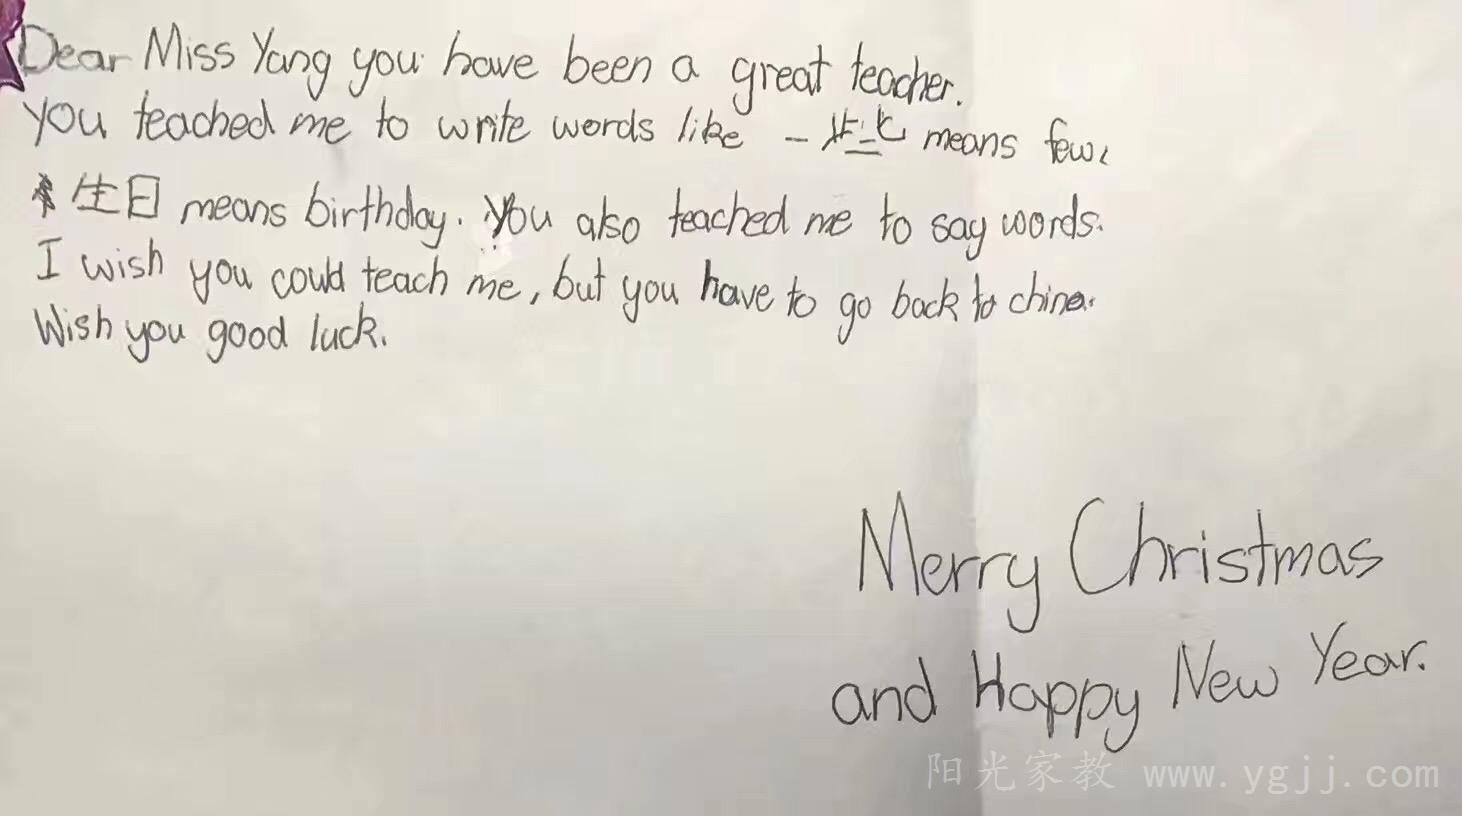 Dear Miss Yang you have been a great teacher.
You teached me to write words like 一些 means few.
生日 means birthday. You also teached me to say words.
I wish you could teach me, but you have to go back to china.
Wish you good luck.
Merry Christmas
and Happy New Year.
阳光家教 www.ygjj.com